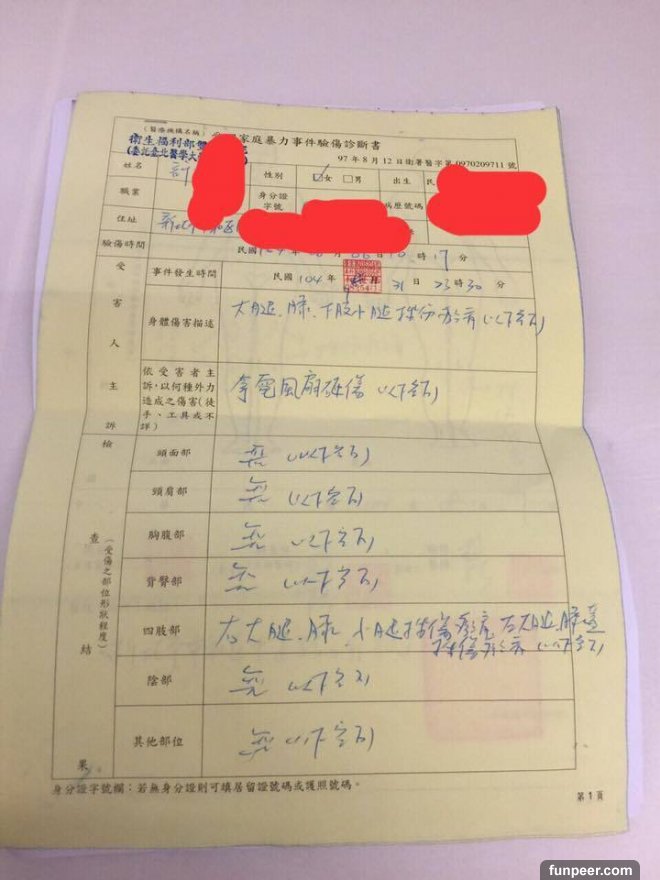 (醫療機構名稱)
家庭暴力事件驗傷診斷書
衛生福利部雙
(委託臺北醫學大
97年8月12日衛署醫字第0970209711號
姓名
性別 ☑女 □男 出生 民
職業
身分證字號
病歷號碼
住址 新北
驗傷時間 民國 時17分
受害人主訴
事件發生時間 民國104年 月31日23時30分
身體傷害描述 大腿、膝、小腿 (以下空白)
依受害者主訴,以何種外力造成之傷害(徒手、工具或不詳) 拿電風扇砸傷 (以下空白)
檢查結果
(受傷之部位形狀程度)
頭面部 無 (以下空白)
頸肩部 無 (以下空白)
胸腹部 無 (以下空白)
背臀部 無 (以下空白)
四肢部 大腿、膝、小腿挫傷 右大腿、膝蓋
挫傷 (以下空白)
陰部 無 (以下空白)
其他部位 無 (以下空白)
身分證字號欄:若無身分證則可填居留證號碼或護照號碼。
第1頁
funpeer.com